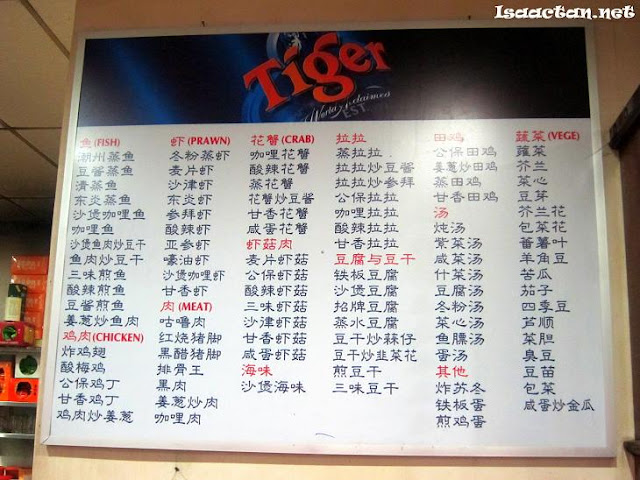 Isaactan.net
Tiger
EST.
鱼(FISH)
潮州蒸鱼
豆酱蒸鱼
清蒸鱼
东炎蒸鱼
沙煲咖哩鱼
咖哩鱼
沙煲鱼肉炒豆干
鱼肉炒豆干
三味煎鱼
酸辣煎鱼
豆酱煎鱼
姜葱炒鱼肉
鸡肉(CHICKEN)
炸鸡翅
酸梅鸡
公保鸡丁
甘香鸡丁
鸡肉炒姜葱
虾(PRAWN)
冬粉蒸虾
麦片虾
沙津虾
东炎虾
参拜虾
亚参虾
嚎油虾
沙煲咖哩虾
甘香虾
肉(MEAT)
咕噜肉
红烧猪脚
黑醋猪脚
排骨王
黑肉
姜葱炒肉
咖哩肉
花蟹(CRAB)
咖哩花蟹
酸辣花蟹
蒸花蟹
花蟹炒豆酱
甘香花蟹
咸蛋花蟹
虾菇肉
麦片虾菇
公保虾菇
酸辣虾菇
三味虾菇
沙津虾菇
甘香虾菇
咸蛋虾菇
海味
沙煲海味
拉拉
蒸拉拉
拉拉炒豆酱
拉拉炒参拜
公保拉拉
咖哩拉拉
酸辣拉拉
甘香拉拉
豆腐与豆干
铁板豆腐
沙煲豆腐
招牌豆腐
蒸水豆腐
豆干炒菻仔
豆干炒韭菜花
煎豆干
三味豆干
田鸡
公保田鸡
姜葱炒田鸡
蒸田鸡
甘香田鸡
汤
炖汤
紫菜汤
咸菜汤
什菜汤
豆腐汤
冬粉汤
菜心汤
鱼膘汤
蛋汤
其他
炸苏冬
铁板蛋
煎鸡蛋
蔬菜(VEGE)
蕹菜
芥兰
菜心
豆芽
芥兰花
包菜花
番薯叶
羊角豆
苦瓜
茄子
四季豆
芦顺
菜胆
臭豆
豆苗
包菜
咸蛋炒金瓜